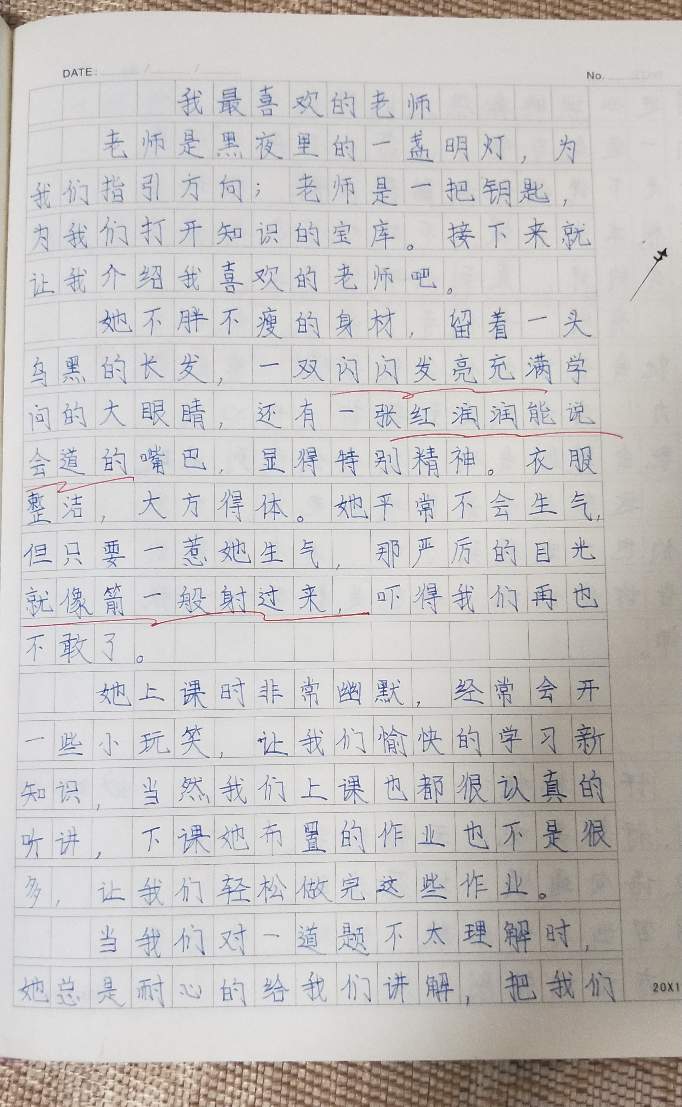 DATE: / /
No.
我最喜欢的老师
老师是黑夜里的一盏明灯，为
我们指引方向；老师是一把钥匙，
为我们打开知识的宝库。接下来就
让我介绍我喜欢的老师吧。
她不胖不瘦的身材，留着一头
乌黑的长发，一双闪闪发亮充满学
问的大眼睛，还有一张红润润能说
会道的嘴巴，显得特别精神。衣服
整洁，大方得体。她平常不会生气，
但只要一惹她生气，那严厉的目光
就像箭一般射过来，吓得我们再也
不敢了。
她上课时非常幽默，经常会开
一些小玩笑，让我们愉快的学习新
知识，当然我们上课也都很认真的
听讲，下课她布置的作业也不是很
多，让我们轻松做完这些作业。
当我们对一道题不太理解时，
她总是耐心的给我们讲解，把我们
20X1